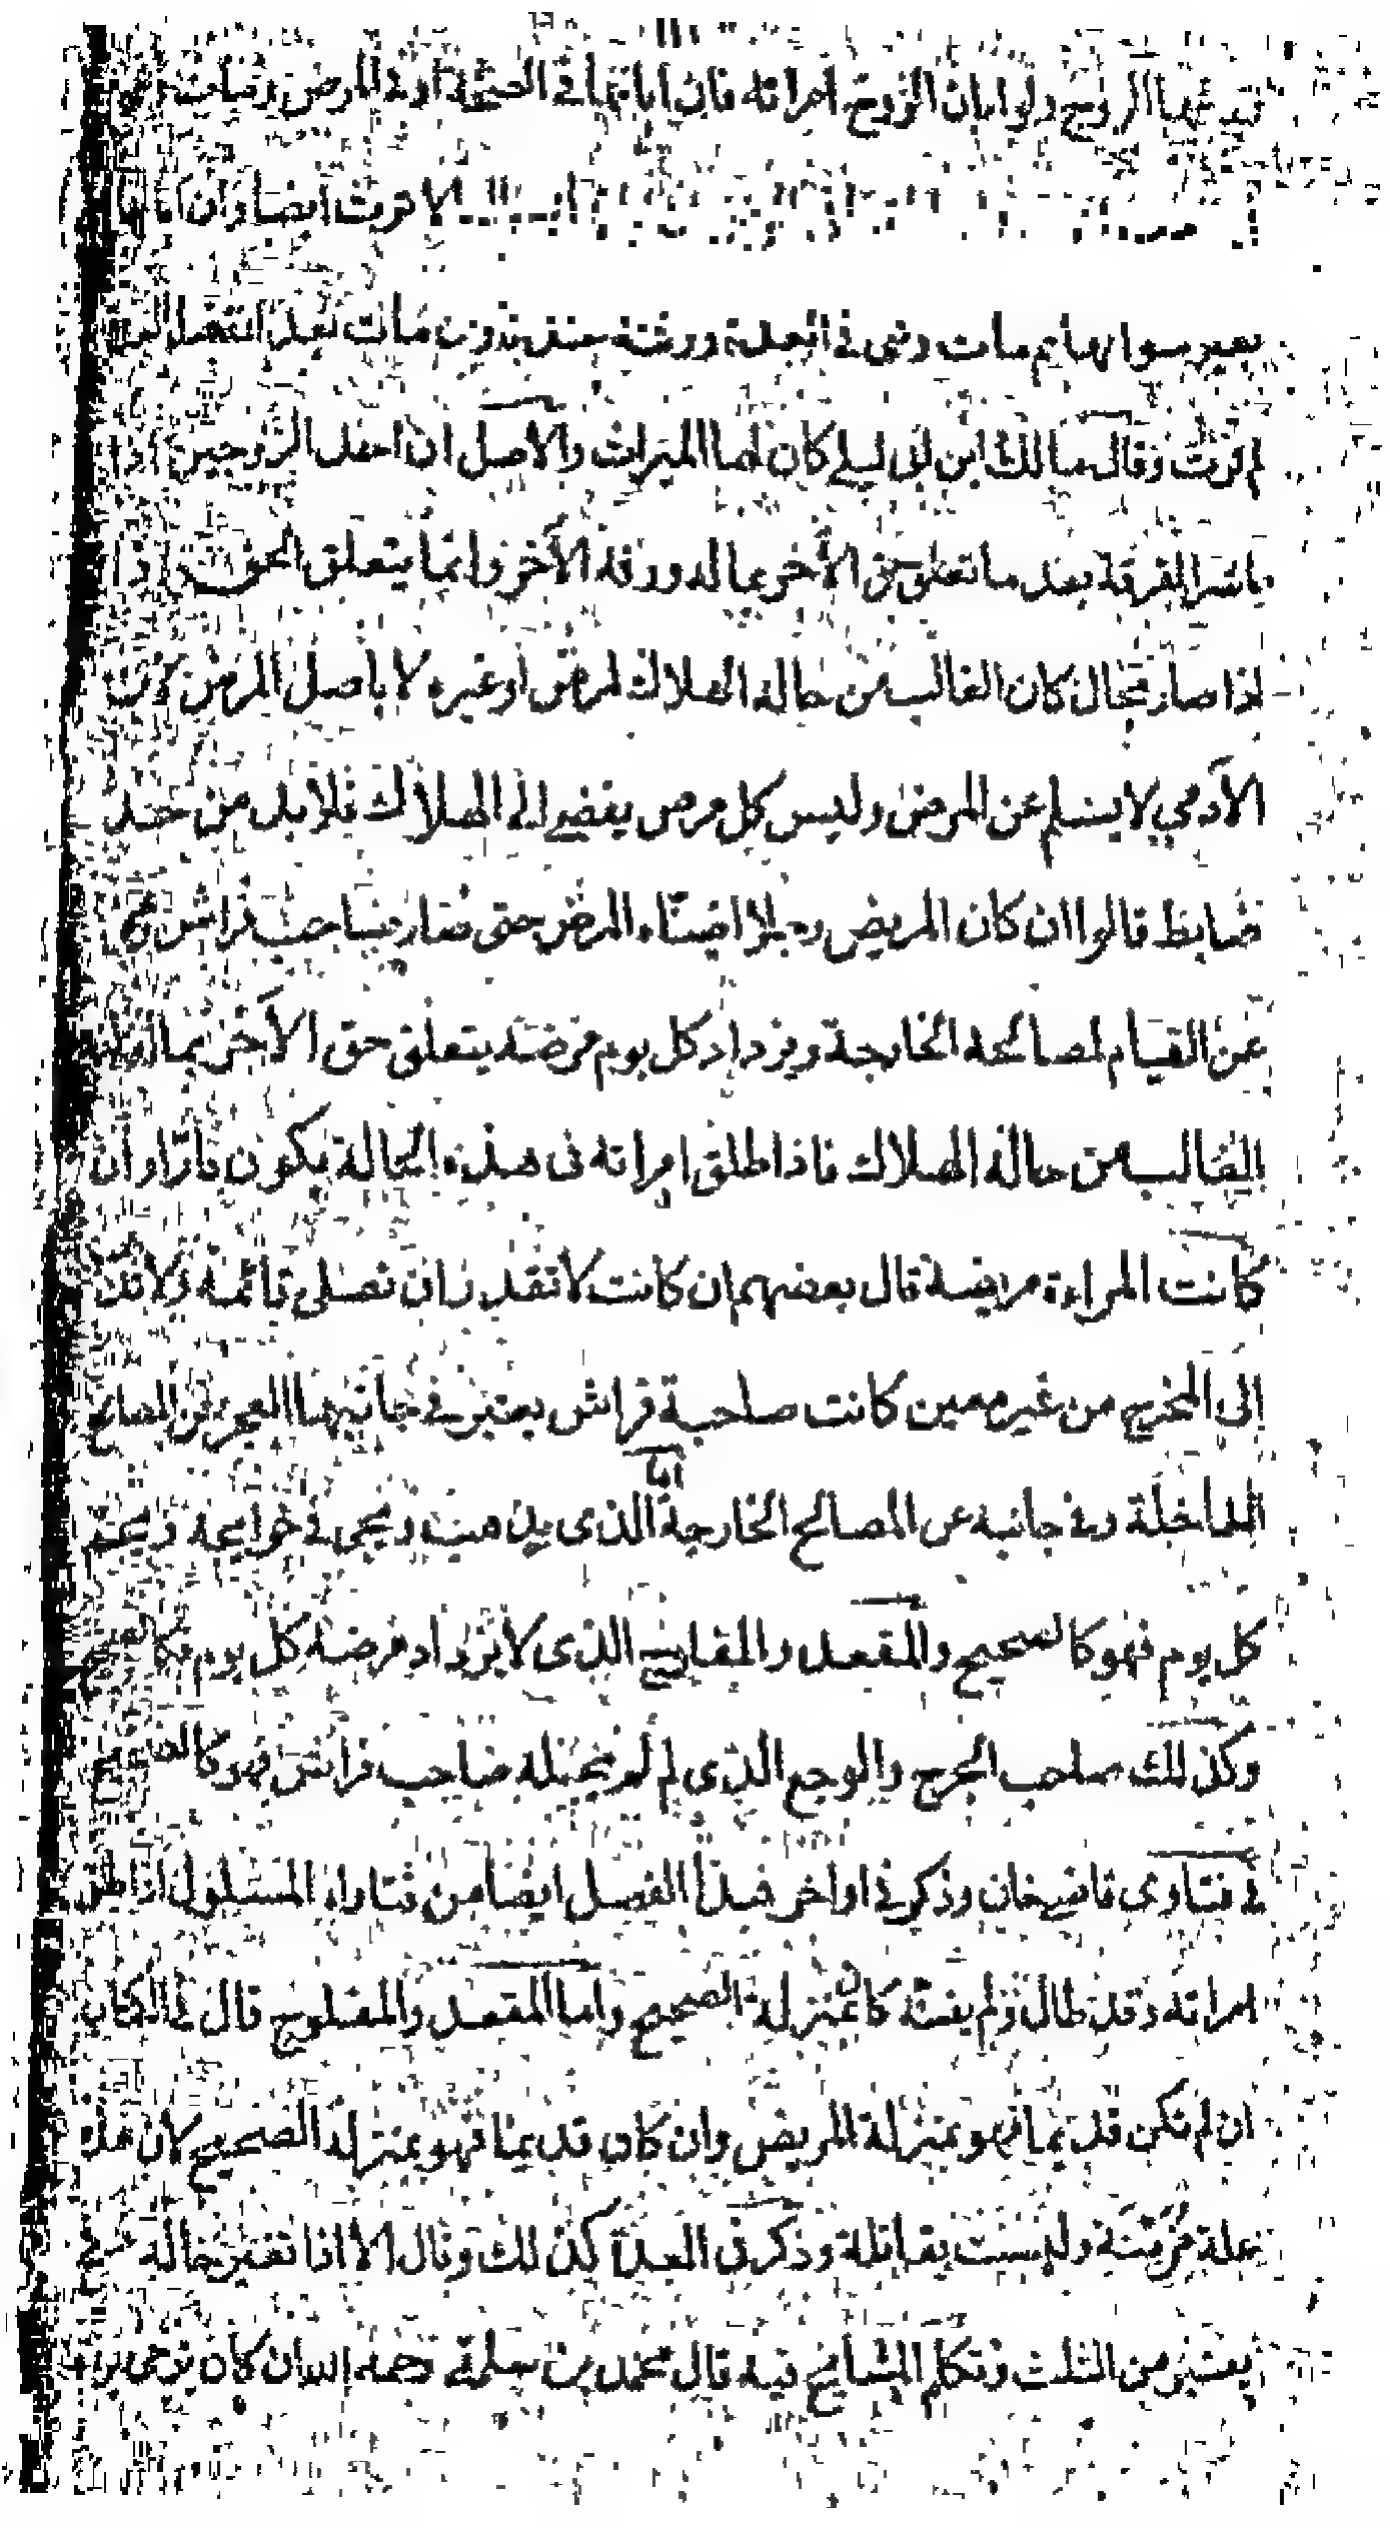 الزوج ولو ابان الزوج امراته فان ابانها في الصحة او في المرض
لا ترث ايضا وان ابانها
بغير سوالها ثم مات وهي في العدة ورثته عندنا وان مات بعد انقضا العدة
لم ترث وقال مالك ابن ابي ليلى كان لها الميراث والاصل ان احد الزوجين اذا
باشر الفرقة بعد ما تعلق حق الآخر بماله ورثه الآخر وانما يتعلق الحق
اذا صار بحال كان الغالب من حاله الهلاك لمرض او غيره لا باصل المرض لان
الآدمي لا يسلم عن المرض وليس كل مرض يفضي الى الهلاك فلا بد من حد
ضابط قالوا ان كان المريض رجلا اضناه المرض حتى صار صاحب فراش
عن القيام لمصالحه الخارجة ويزداد كل يوم مرضه يتعلق حق الآخر بماله
الغالب من حاله الهلاك فاذا طلق امراته في هذه الحالة يكون فارّا وان
كانت المراءة مريضة قال بعضهم ان كانت لا تقدر ان تصلي قائمة ولا
الى المخرج من غير معين كانت صاحبة فراش يعتبر في جانبها العجز عن المصالح
الداخلة وفي جانبه عن المصالح الخارجة اما الذي يذهب ويجي في حوايجه ويحم
كل يوم فهو كالصحيح والمقعد والمفلوج الذي لا يزداد مرضه كل يوم فكالصحيح
وكذلك صاحب الجرح والوجع الذي لم يجعله صاحب فراش فهو كالصحيح
في فتاوى قاضيخان وذكر في اواخر هذا الفصل ايضا من فتاواه المسلول اذا طلق
امراته وقد طال ولم يضنه كان بمنزلة الصحيح واما المقعد والمفلوج قال في الكتاب
ان لم تكن قديما فهو بمنزلة المريض وان كان قديما فهو بمنزلة الصحيح لان هذه
علة مزمنة وليست بقاتلة وذكر في العدة كذلك وقال الا اذا تغير حاله
يعتبر من الثلث وتكلم المشايخ فيه قال محمد بن سلمة رحمه الله ان كان يرجى